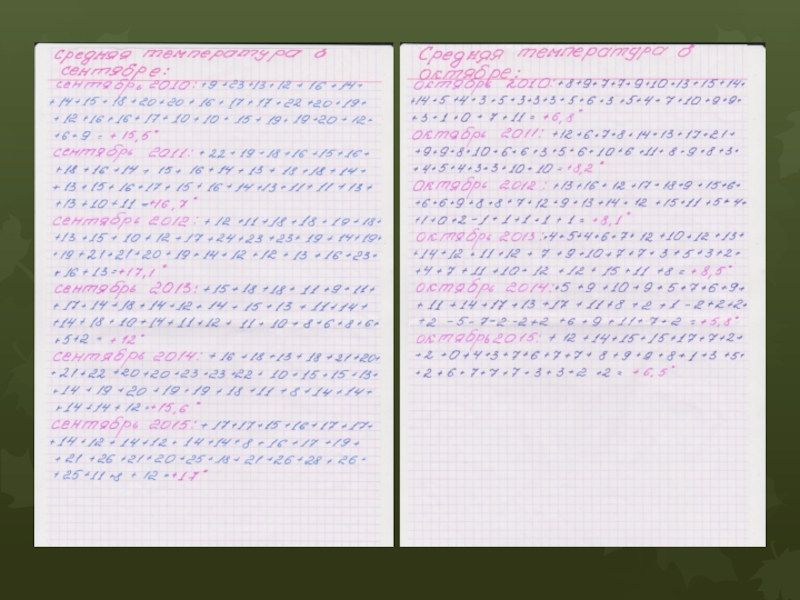 Средняя температура в
сентябре:
сентябрь 2010: +9 +23+13+12 + 16 +14+
+14+15 + 18 +20+20 + 16 + 17 + 17 +22 +20 + 19+
+ 12 +16 +16 +17 + 10 + 10 + 15 + 19 + 19+20 + 12+
+6 + 9 = + 15,5°
сентябрь 2011: + 22 + 19 + 18 +16 +15 +16+
+18 +16 +14 + 15 + 16 +14 + 13 + 18 +18 + 14+
+ 13 + 15 +16 +17 + 15 + 16 + 14 +13 + 11 + 11 + 13 +
+ 13 +10 + 11 =+16,7°
сентябрь 2012: + 12 +11 +18 +18 + 19 +18+
+13 +15 + 10 + 12 + 17 +24 +23 +23+ 19 + 14 +19+
+19 +21 +21 +20 + 19 + 14 + 12 + 12 + 13 + 16 +23+
+ 16 + 13 =+17,1°
сентябрь 2013: + 15 +18 +18 + 11 +9 + 11+
+ 17+ 14 +18 +14 +12 + 14 + 15 + 13 + 11+14+
+14 +18 + 10 +14 + 11 +12 + 11 + 10 + 8 + 6 + 8 + 6+
+ 5+2 = + 12°
сентябрь 2014: + 16 +18 +13 + 18 +21 +20+
+ 21 +22 +20 +20 +23 +23 +22 + 10 + 15 + 15 +13+
+ 14 + 19 +20 + 19 + 19 + 18 + 11 + 8 + 14 + 14+
+14 +14 + 12=+15,6°
сентябрь 2015: + 17+17+15 +16 +17 + 17+
+ 14 + 12 + 14 +12 + 14 +14 + 8 + 16 + 17 + 19 +
+ 21 +26 +21 +20 +25 + 18 + 21 +26 +28 + 26 +
+ 25+11 +8 + 12 =+17°
Средняя температура в
октябре:
октябрь 2010: +8+9+7+7 +9 +10 +13 +15 +14+
+14 +5 +4 +3 +5 +3+3+3 +5 +6 +3 +5+4+ 7+10 +9+9+
+3 + 1 + 0 + 7 + 11 = +6,8°
октябрь 2011: +12 +6 +7+8 +14 +13 +17 +21+
+9+9+8 +10 + 6 + 6 +3 + 5 + 6 +10 +6 +11+ 8 + 9 + 8 +3+
+4 + 5+4 +3 +3 + 10 + 10 = +8,2°
октябрь 2012: +13+16 + 12 +17 +18+9 +15+6+
+6 +6 +9 +8 +8 + 7 + 12 + 9 + 13 +14 + 12 +15 +11 +5+ 4+
+1+0 +2 -1 +1 +1 +1 +1 = +8,1°
октябрь 2013:+4+5+4+6+7+ 12 +10+12 +13+
+14 +12 + 11 +12 + 7 + 9 + 10 + 7 +7 + 3 + 5 + 3 + 2+
+4 + 7 + 11 + 10+ 12 + 12 + 15 + 11 +8 = +8,5°
октябрь 2014:+5 +9 +10 +9 +5 +7 +6 +9+
+ 11 + 14 +17 + 13 +17 + 11+8 +2 +1 -2+2+2+
+2 -5-7-2-2+2 +6 +9 +11+7+2 =+5,8°
октябрь2015: + 12 +14+15+15+17+7+2+
+2 +0+4+3 +7+6 +7+7+ 8 +9 +9 +8 +1 +3 +5+
+2 +6+7+7+7 +3+3+2 +2 = +6,5°